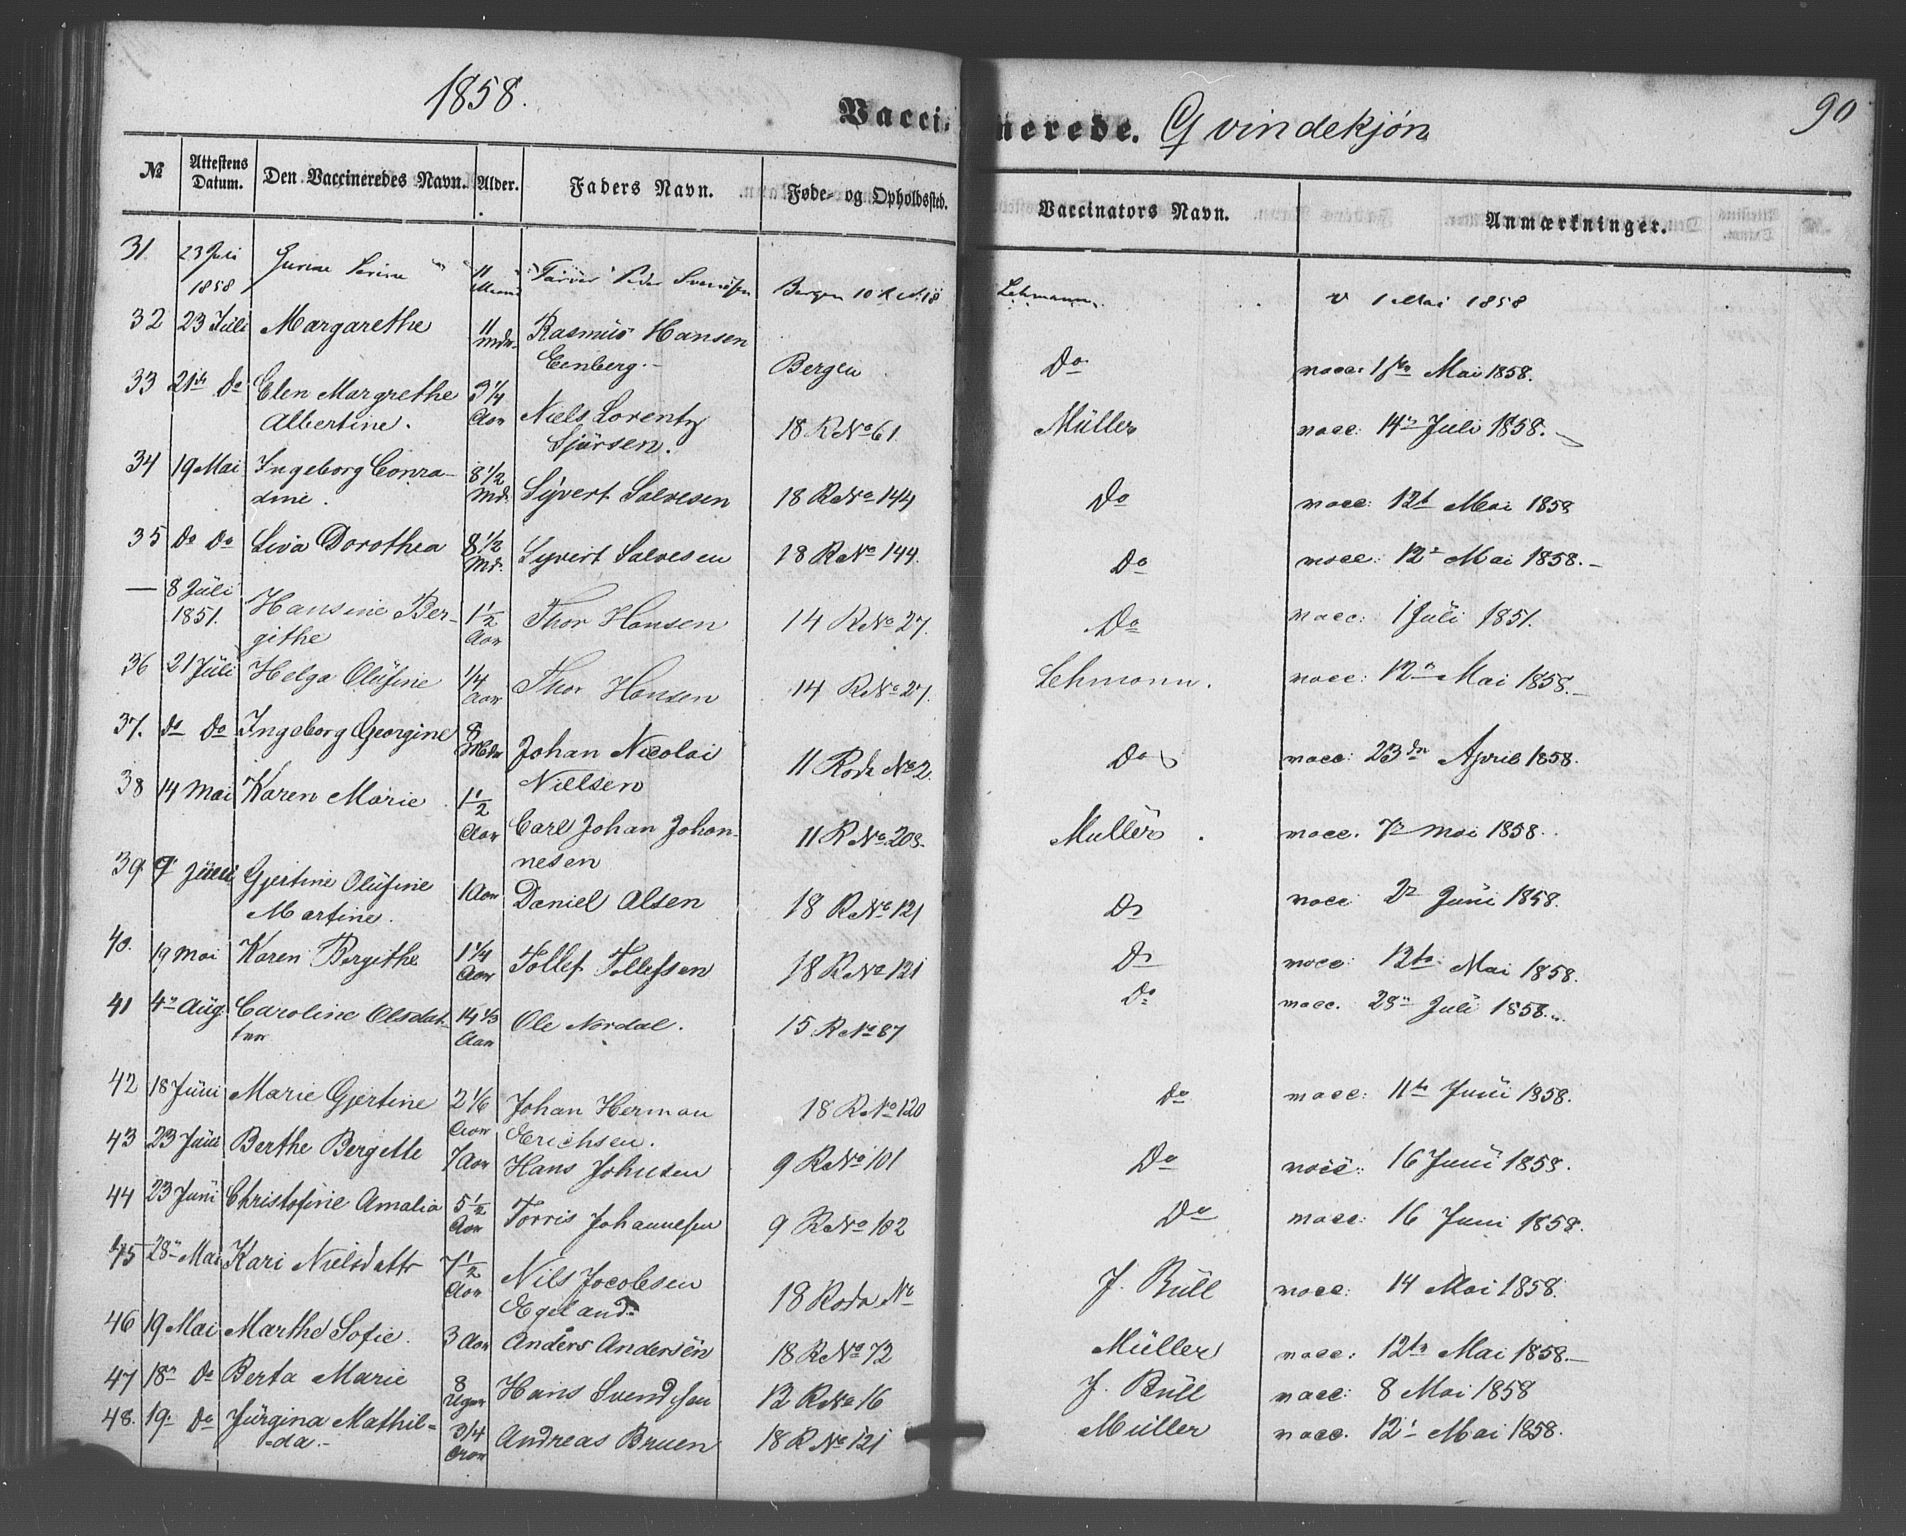 1858.
Vaccinerede. Qvindekjøn
90
№ Attestens Datum. Den Vaccineredes Navn. Alder. Faders Navn. Føde- og Opholdssted. Vaccinators Navn. Anmærkninger.
31. 23 Juli 11 Peder Bergen 10 R N. 18 Lehmann. v 1 Mai 1858
1858
32 23 Juli Margarethe 11 Mdr. Rasmus Hansen Bergen Do vacc: Mai 1858.
Eenberg.
33 21de Do Elen Margrethe 3 1/4 Aar Niels Lorentz 18 R No 61. Müller vacc: 14de Juli 1858.
Albertine. Sjursen.
34 19 Mai Ingeborg Conra- 8 1/2 Md. Syvert Salvesen 18 R No 144 Do vacc: 12t Mai 1858
dine.
35 Do Do Liva Dorothea 8 1/2 Md. Syvert Salvesen 18 R No 144. Do vacc: 12 Mai 1858.
— 8 Juli
1851. Hansine Ber- 1 1/2 Aar Thor Hansen 14 R No 27. Do vacc: 1 Juli 1851.
githe
36 21 Juli Helga Olufine 1/4 Aar Thor Hansen 14 R No 27. Lehmann. vacc: 12 Mai 1858.
37. do Do Ingeborg Georgine 8 Mdr Johan Nicolai 11 Rode No 2. Do vacc: 23de April 1858.
Nielsen
38 14 Mai Karen Marie 1 1/2 Aar Carl Johan Johan- 11 R No 208. Muller vacc. 7 mai 1858.
nesen
39. 9 Juni Gjertine Olufine 1 Aar Daniel Olsen 18 R No 121 Do vacc 2 Juni 1858.
Martine.
40. 19 mai Karen Bergithe 1 1/4 Aar Tollef Tollefsen 18 R No 121 Do vacc: 12te Mai 1858.
41 4 Aug. Caroline Olsdat- 14 1/3 Aar Ole Nordal. 15 R No 87 Do vacc. 28 Juli 1858.
ter
42 18 Juni Marie Gjertine 2 1/6 Aar Johan Herman 18 R No 120 Do vacc: 11te Juni 1858.
Erichsen.
43 23 Juni Berthe Bergette 7 Aar Hans Johnsen 9 R No 101 Do vacc: 16 Juni 1858.
44 23 Juni Christofine Amalia 5 1/2 Aar Torris Johannesen 9 R No 102 Do vacc: 16 Juni 1858.
45 28 Mai Kari Nielsdattr 7 1/2 Aar Nils Jacobsen 18 Rode No J. Büll vacc: 14 Mai 1858.
Egeland
46 19 Mai Marthe Sofie. 3 Aar Anders Andersen 18 R No 72 Müller vacc: 12te Mai 1858.
47 18 Do Berta Marie 8 Uger Hans Svendsen 12 R No 16 J. Büll vacc: 8 Mai 1858
48. 19. Do Jürgina Mathil- 3/4 Aar Andreas Bruen 18 R No 121 Müller vacc. 12 Mai 1858.
da.